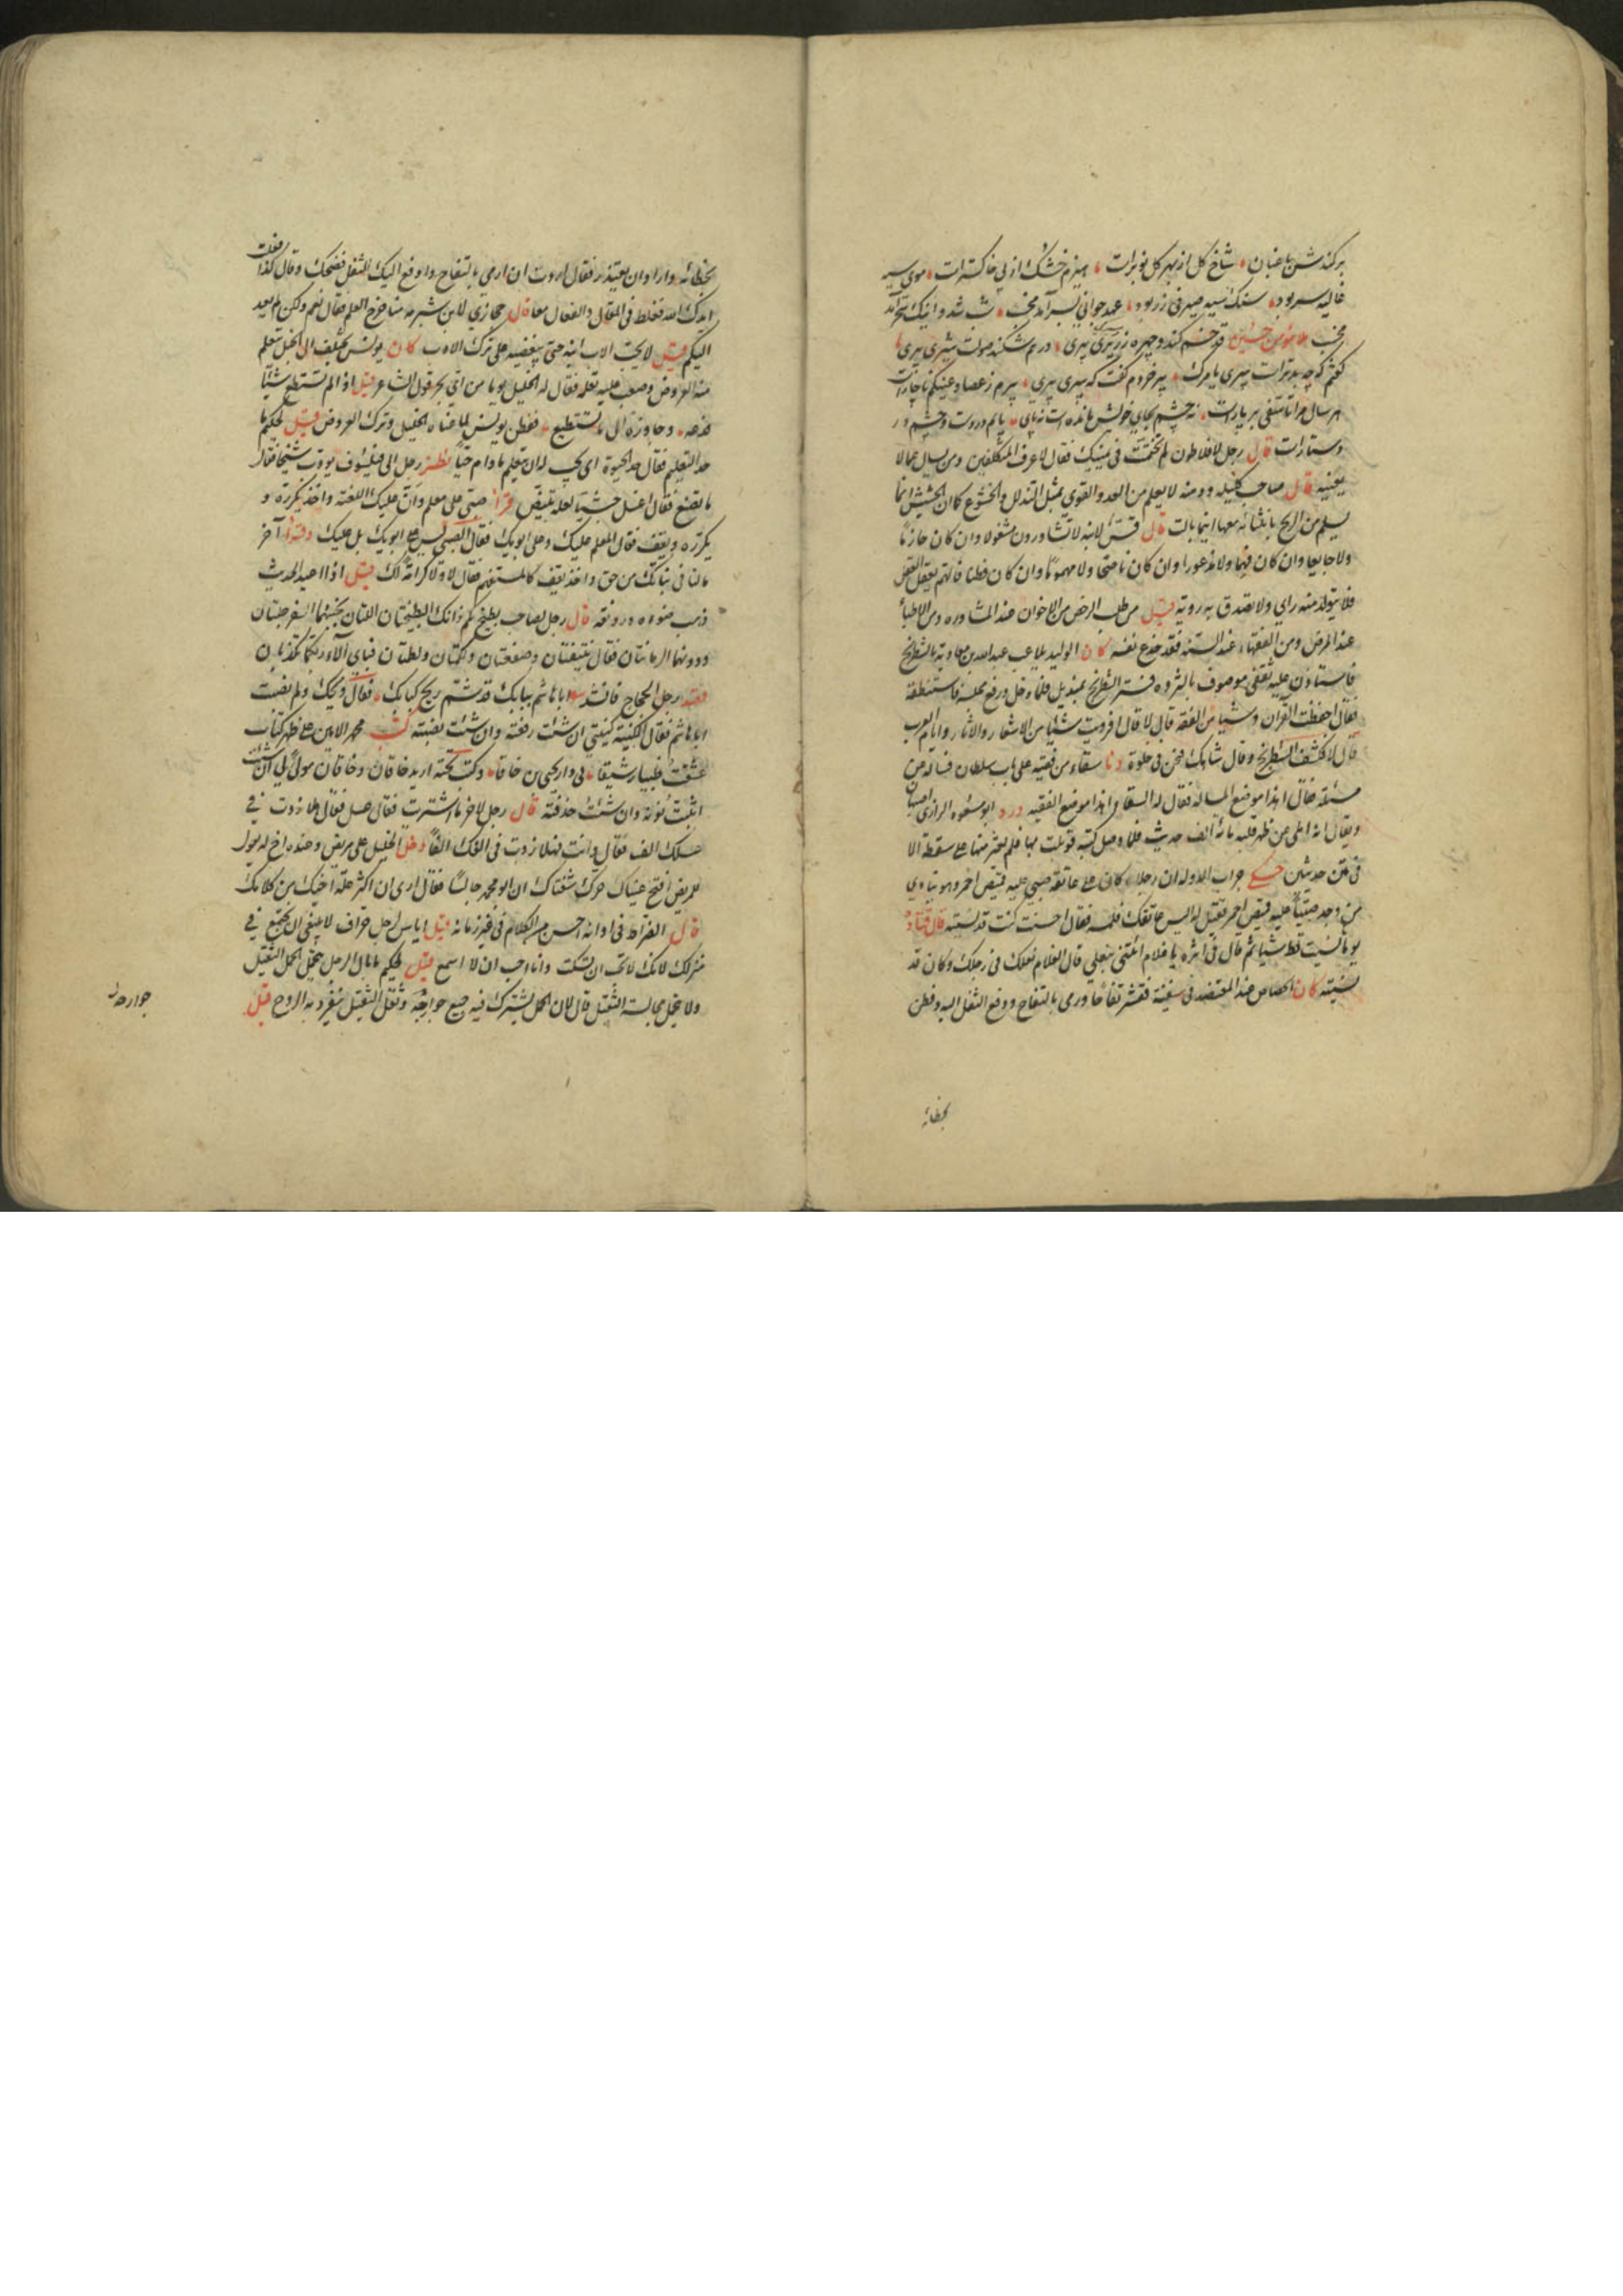 برکندش باغبان شاخ کل از بهر کل نوبرات هیزم خشک از پی خاکسترات موی سیه
غالیه سر بود سنک سیه صیرفی زر بود عهد جوانی بسر آمد مخب شب شد و اینک سحر آمد
مخب ملا مؤمن حسین قد خم کند و چهره زریری پیری درهم شکند صولت شیری پیری
کفتم که چه بدترات پیری یا مرک پیر خردم کفت که پیری پیری پیرم ز عصا و عینکم ناچارات
هر سال مرا تا سقفی بر یادرات نه چشم بجای خویش مانده است نه پای پایم در دست و چشم در
دستارات قال رجل لافلاطون لم تختمت فی یمینک فقال لاعرف المتکلفین ومن یسال عما لا
یعنیه قال صاحب کلیله ودمنه لا یسلم من العدو القوی بمثل التذلل والخشوع کما ان الحشیش انما
یسلم من الریح بانثنائه معها اینما مالت قال قس لابنه لا تشاورون مشغولا وان کان حازما
ولا جایعا وان کان فهما ولا مذعورا وان کان ناصحا ولا مهموما وان کان فطنا فالهم یعقل العقل
فلا یتولد منه رای ولا تصدق به رویة قیل من طلب الرخص من الاخوان عند المشاوره ومن الاطباء
عند المرض ومن الفقهاء عند الشبهه فقد خدع نفسه کان الولید یلاعب عبدالله بن معاویة بالشطرنج
فاستاذن علیه ثقفی موصوف بالثروه فستر الشطرنج بمندیل فلما دخل ورفع مجلسه فاستنطقه
فقال احفظت القرآن وشیئا من الفقه قال لا قال افرویت شیئا من الاشعار والاثار وایام العرب
قال لا فکشف الشطرنج وقال شاهک فنحن فی خلوة دنا سقاء من فقیه علی باب سلطان فساله عن
مسئلة فقال اهذا موضع المساله فقال له السقاء اهذا موضع الفقیه ورد ابو مسعود الرازی اصبهان
ویقال انه املی عن ظهر قلبه مائة الف حدیث فلما وصل کتبه قوبلت بها فلم یعثر منها علی سقطة الا
فی متن حدیثین حکی جراب الدوله ان رجلا کان علی عاتقه صبی علیه قمیص احمر وهو ینادی
من وجد صبیا علیه قمیص احمر فقیل له الیس علی عاتقک فلمسه فقال احسنت کنت قد نسیته قال قتاده
یوما ما نسیت قط شیئا ثم قال فی اثره یا غلام ائتنی بنعلی قال الغلام نعلک فی رجلک وکان قد
نسیته کان الجصاص عند المعتضد فی سفینة فقشر تفاحا ورمی بالتفاح ووقع الثفل الیه وفطن
بخطائه
بخطائه واراد ان یعتذر فقال اردت ان ارمی بالتفاح وادفع الیک الثفل فضحک وقال کذا فعلت
ایدک الله فغلط فی المقال والفعال معا قال حجازی لابن شبرمه منا خرج العلم فقال نعم ولکن لم یعد
الیکم قیل لا یحب الاب ابنه حتی یبغضه علی ترک الادب کان یونس یختلف الی الخلیل یتعلم
منه العروض وصعب علیه تعلمه فقال له الخلیل یوما من ای بحر قول الشاعر قیل اذا لم تستطع شیئا
فدعه وجاوزه الی ما تستطیع ففطن یونس لما عناه الخلیل وترک العروض قیل لحکیم ما
حد التعلیم فقال حد الحیوة ای یجب له ان یتعلم ما دام حیا نظر رجل الی فیلسوف یؤدب شیخا فقال
ما تصنع فقال اغسل حبشیا لعله یبیض قرا صبی علی معلم وان علیک اللعنة واخذ یکرره و
یکرره ویقف فقال المعلم علیک وعلی ابویک فقال الصبی لیس علی ابویک بل علیک وقرا آخر
مالنا فی بناتک من حق واخذ یقف کالمستفهم فقال لا ولا کرامة لک قیل اذا اعید الحدیث
ذهب ضوءه ورونقه قال رجل لصاحب بطیخ بکم ذانک البطیختان اللتان بجنبهما السفرجلتان
ودونهما الرمانتان فقال بنتفتان وصفعتان ولکمتان ولطمتان فبای آلاء ربکما تکذبان
قصد رجل الحجاج فانشد ابا هاشم ببابک قد شم ریح کبابک فقال ویحک ولم نصبت
ابا هاشم فقال الکنیة کنیتی ان شئت رفعته وان شئت نصبته کتب محمد الامین علی ظهر کتاب
عشقت ظبیا رشیقا فی دار یحیی بن خاقا وکتب تحته ارید خاقان وخاقان مولی لی ان شئت
اثبت نونه وان شئت حذفته قال رجل لاخر بما اشتریت فقال عسل فقال هلا زدت فی
عسلک الف فقال وانت فهلا زدت فی الفک الفا دخل الخلیل علی مریض وعنده اخ له یقول
للمریض افتح عیناک حرک شفتاک ان ابو محمد جالسا فقال اری ان اکثر علة اخیک من کلامک
قال القراط فی اوانه احسن من الکلام فی غیر زمانه قیل ایاس لرجل خراف لا ینبغی ان نجتمع فی
منزلک لانک لا تحب ان تسکت وانا احب ان لا اسمع قیل لحکیم ما بال الرجل یحمل الحمل الثقیل
ولا یحمل مجالسة الثقیل قال لان الحمل یشترک فیه جمیع جوارحه وثقل الثقیل ینفرد به الروح قیل
جوارحه